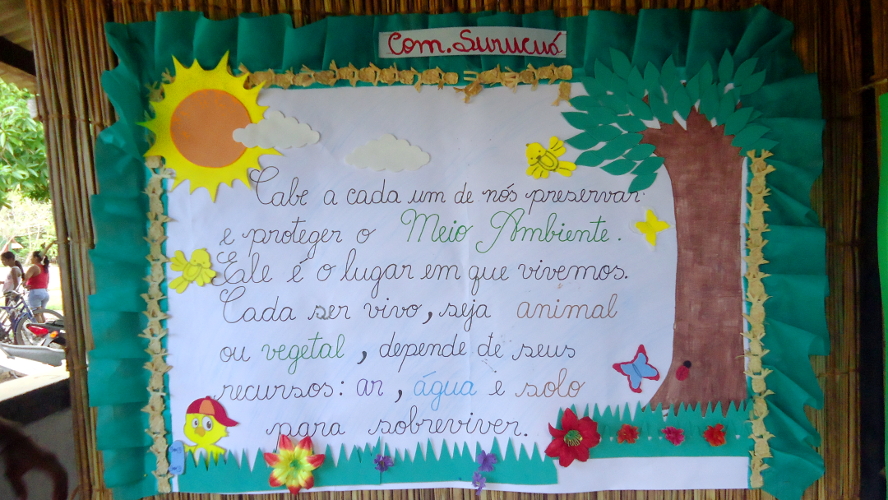 Com. Surucuá
Cabe a cada um de nós preservar
e proteger o Meio Ambiente.
Ele é o lugar em que vivemos.
Cada ser vivo, seja animal
ou vegetal, depende de seus
recursos: ar, água e solo
para sobreviver.